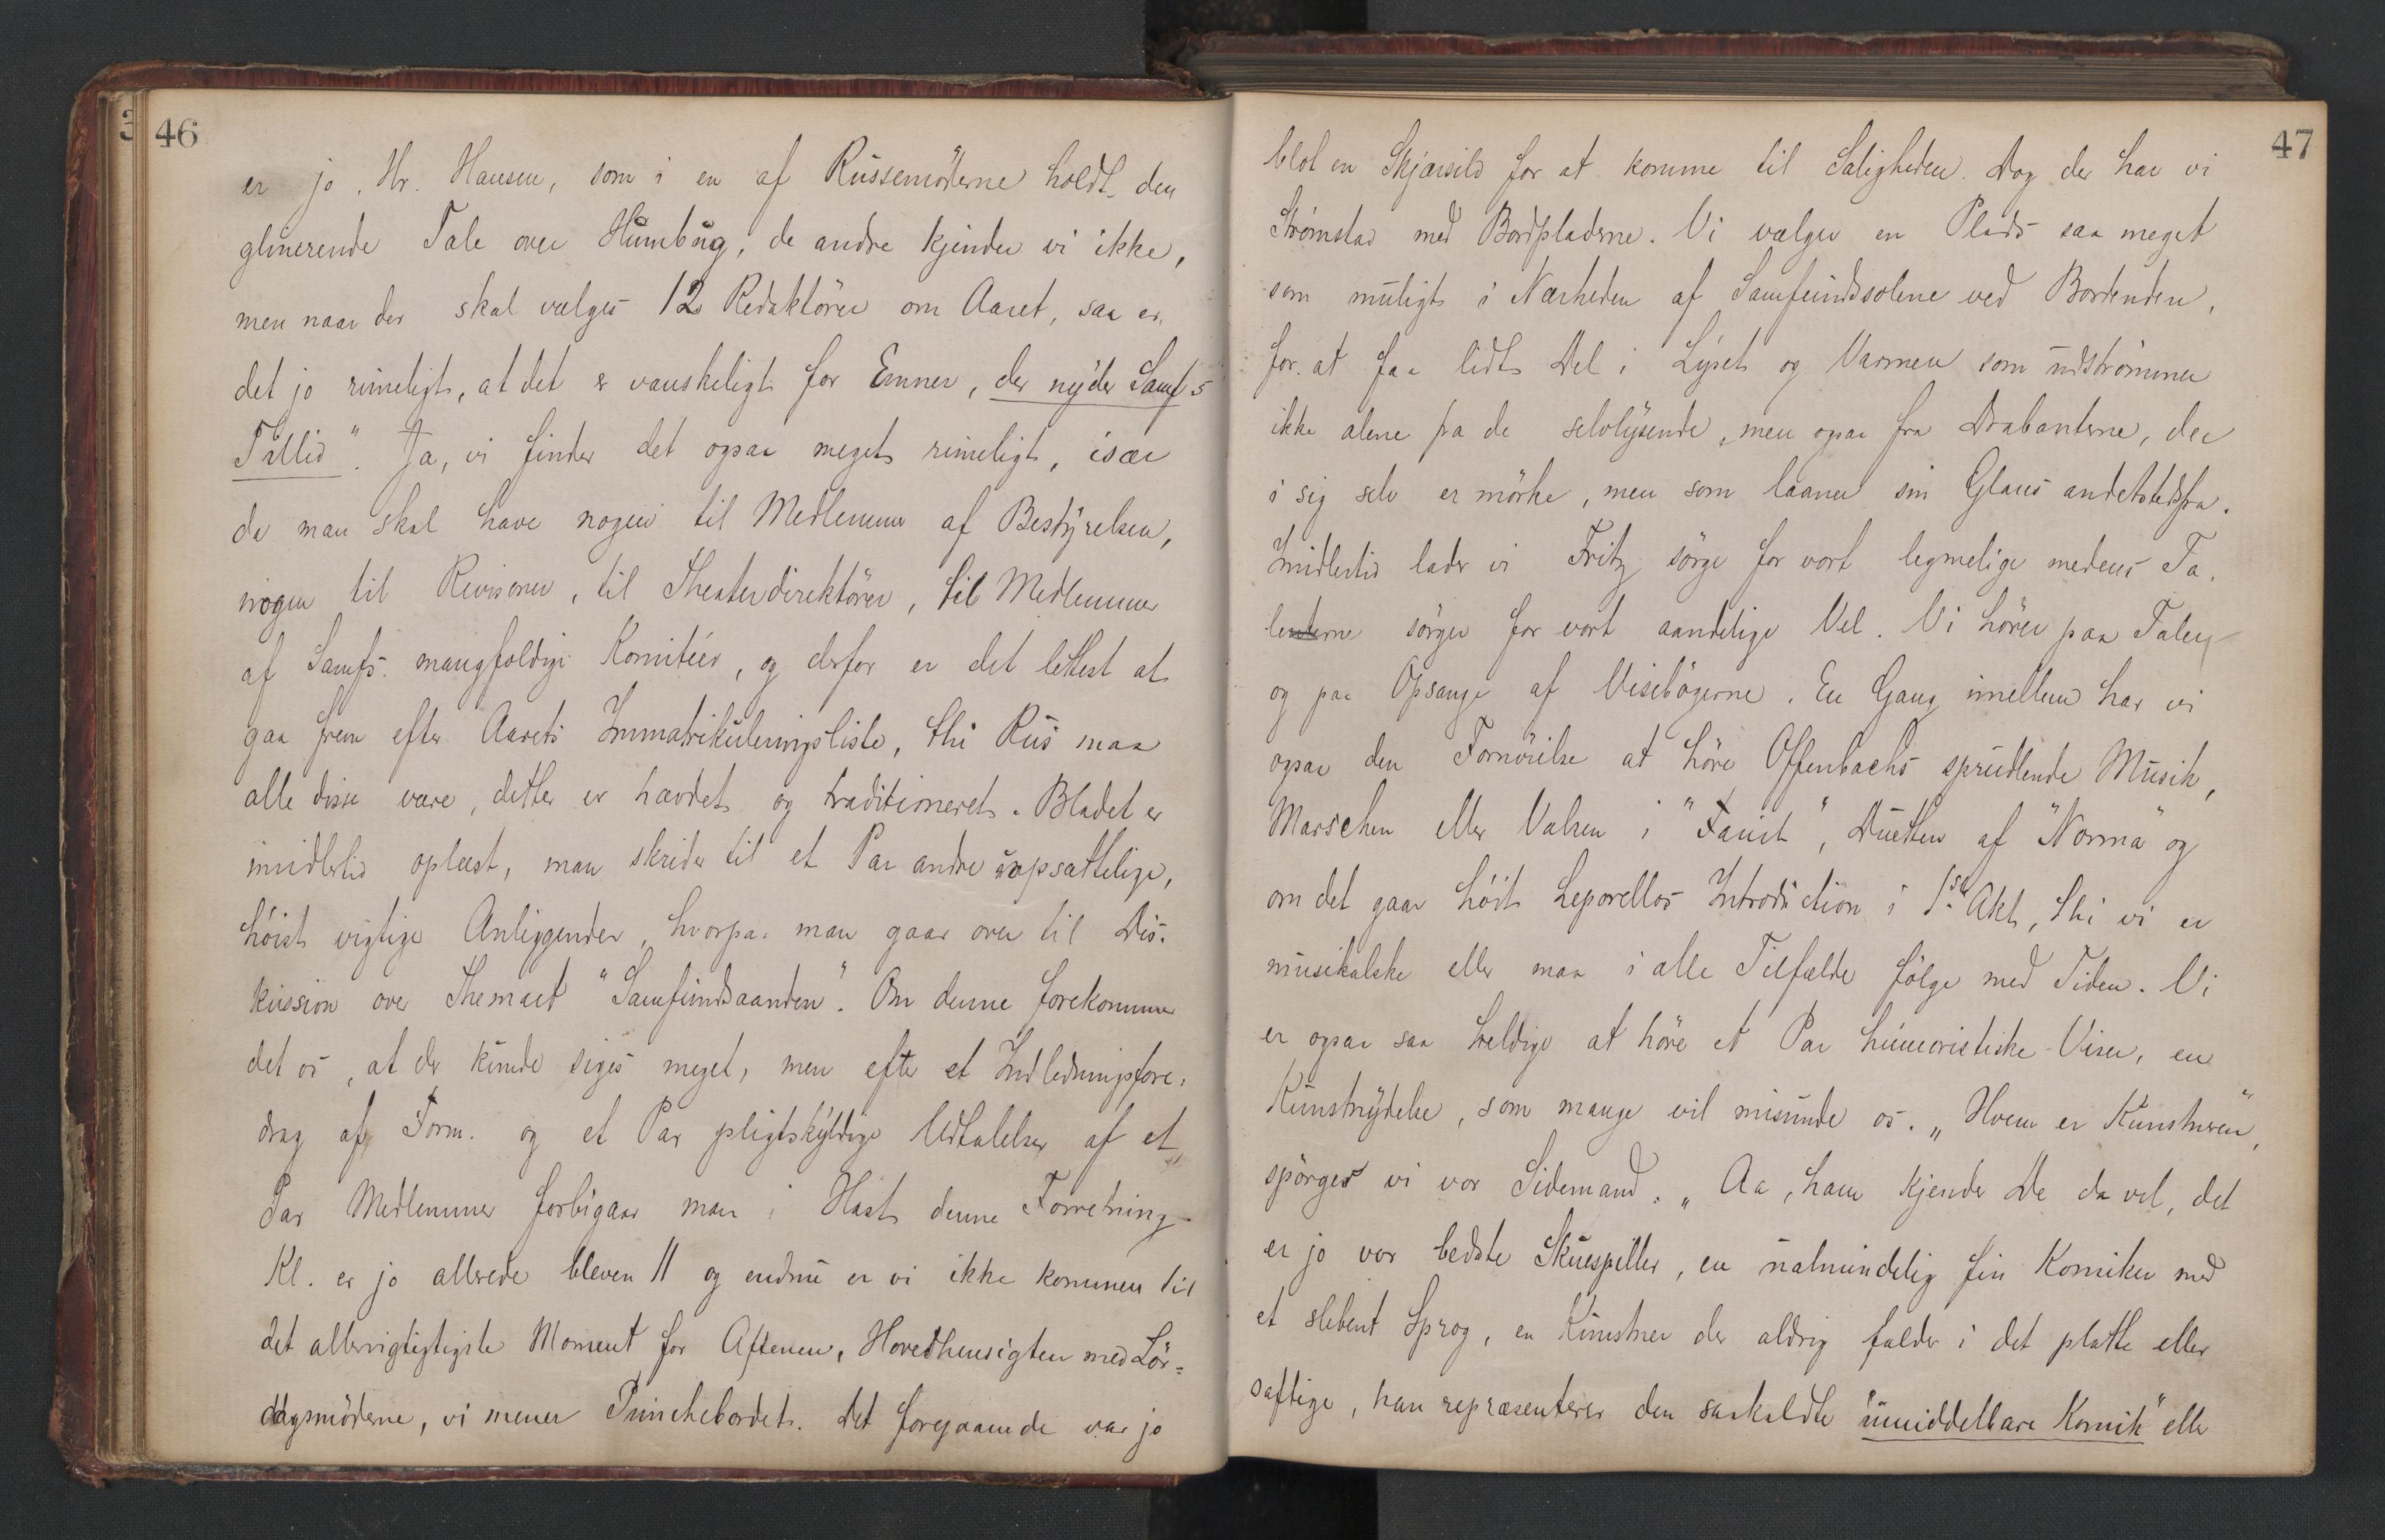 46
er jo Hr. Hansen, som i en af Russemöderne holdt den
glimrende Tale over Humbug, de andre kjender vi ikke,
men naar der skal vælges 12 Redaktörer om Aaret, saa er
det jo rimeligt, at det er vanskeligt for Emner, der nyder Samfs
Tillid". Ja, vi finder det ogsaa meget rimeligt, især
da man skal have nogen til Medlemmer af Bestyrelsen,
nogen til Revisorer, til Theaterdirektörer, til Medlemmer
af Samfs. mangfoldige Komitéer, og derfor er det lettest at
gaa frem efter Aarets Immatrikuleringsliste, thi Rus maa
alle disse være, dette er hævdet og traditioneret. Bladet er
imidlertid oplæst, man skrider til et Par andre uopsættelige,
höist vigtige Anliggender, hvorpaa man gaar over til Dis-
kussion over Themaet "Samfundsaanden". Om denne forekommer
det os, at der kunde siges meget, men efter et Indledningsfore-
drag af Form. og et Par pligtskyldige Udtalelser af et
Par Medlemmer forbigaar man i Hast denne Forretning.
Kl. er jo allerede bleven 11 og endnu er vi ikke kommen til
det allervigtigtigste Moment for Aftenen, Hovedhensigten med Lör=
dagsmöderne, vi mener Punschebordet. Det foregaaende var jo
47
blot en Skjærsild for at komme til Saligheden. Dog der har vi
Strömstad med Bordpladerne. Vi vælger en Plads saa meget
som muligt i Nærheden af Samfundssolene ved Bordenden,
for at faa lidt Del i Lyset og Varmen som udströmmer
ikke alene fra de selvlysende, men ogsaa fra Drabanterne, der
i sig selv er mörke, men som laaner sin Glans andetstedsfra.
Imidlertid lader vi Fritz sörge for vort legmelige medens Ta-
lenterne sörger for vort aandelige Vel. Vi hörer paa Taler
og paa Opsange af Visebögerne. En Gang imellem har vi
ogsaa den Fornöielse at höre Offenbachs sprudlende Musik,
Marschen eller Valsen i "Faust", Duetten af "Norma" og
om det gaar höit Leporellos Introduction i 1ste Akt, thi vi er
musikalske eller maa i alle Tilfælde fölge med Tiden. Vi
er ogsaa saa heldige at höre et Par humoristiske Viser, en
Kunstnydelse, som mange vil misunde os. „Hvem er Kunstneren",
spörger vi vor Sidemand. „Aa, ham kjender De da vel, det
er jo vor bedste Skuespiller, en ualmindelig fin Komiker med
et slebent Sprog, en Kunstner der aldrig falder i det platte eller
saftige, han repræsenterer den saakaldte "umiddelbare Komik" eller